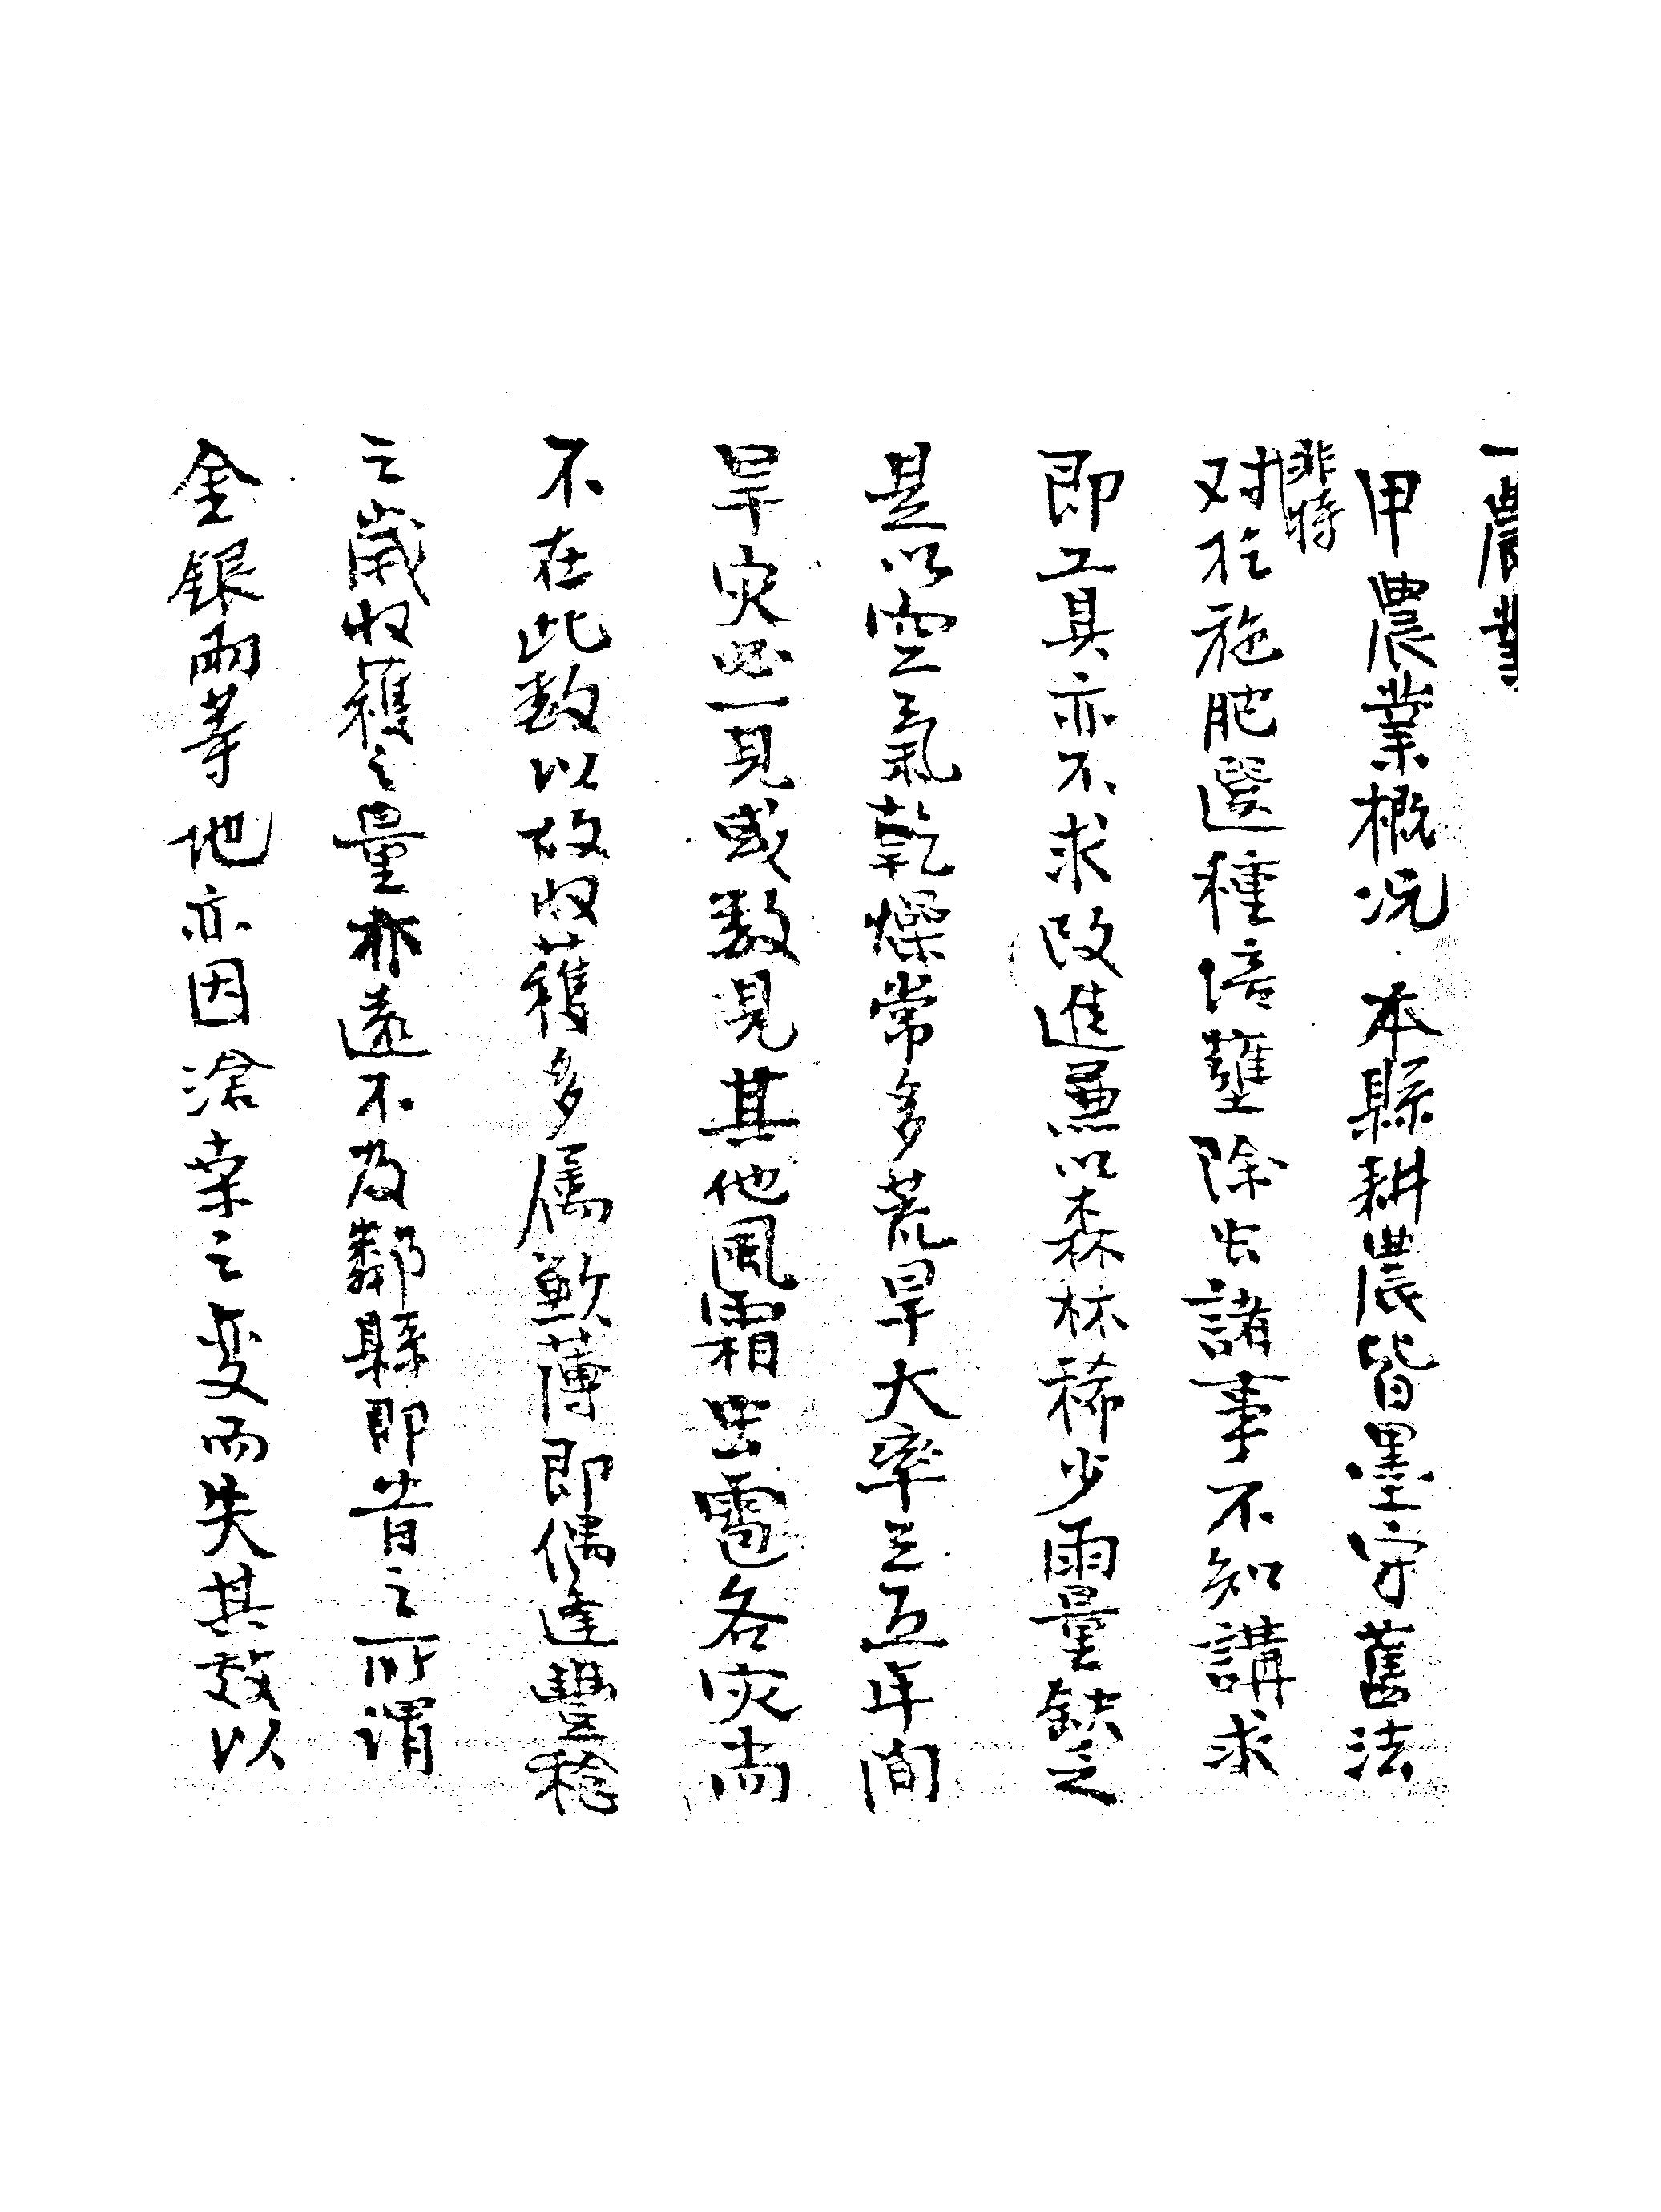 一農業
甲農業概況 本縣耕農皆墨守舊法
非特
对於施肥選種培壅除虫諸事不知講求
即工具亦不求改進兼以森林稀少雨量缺乏
是以空氣乾燥常多荒旱大率三五年間
旱灾必一見或数見其他風霜虫雹各灾尚
不在此数以故收穫多属歉薄即偶逢豐稔
之歲收穫之量亦遠不及鄰縣即昔之所谓
金銀兩等地亦因滄桑之变而失其效以